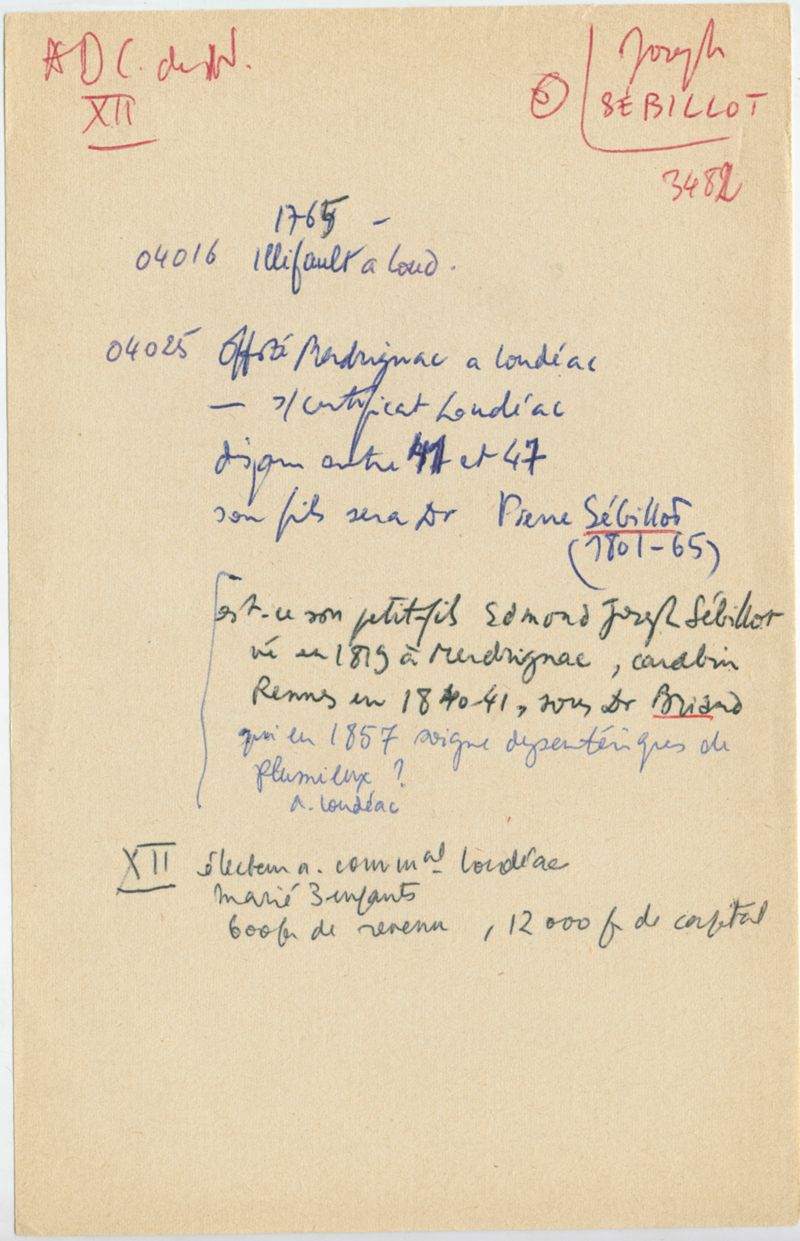 ADC.
XII
Joseph
SEBILLOT
3482
1765 –
04016 Illifault a Loud.
04025 Offté Merdrignac a Loudéac
— s/certificat Loudéac
dispu entre 41 et 47
son fils sera Dr Pierre Sébillot
(1801-65)
est-ce son petit-fils Edmond Joseph Sébillot
né en 1819 à Merdrignac, carabin
Rennes en 1840-41, sous Dr Briand
qui en 1857 soigne dysentériques de
Plumieux ?
a. Loudéac
XII électeur a. commal Loudéac
marié 3 enfants
600fr de revenu, 12 000 fr de capital